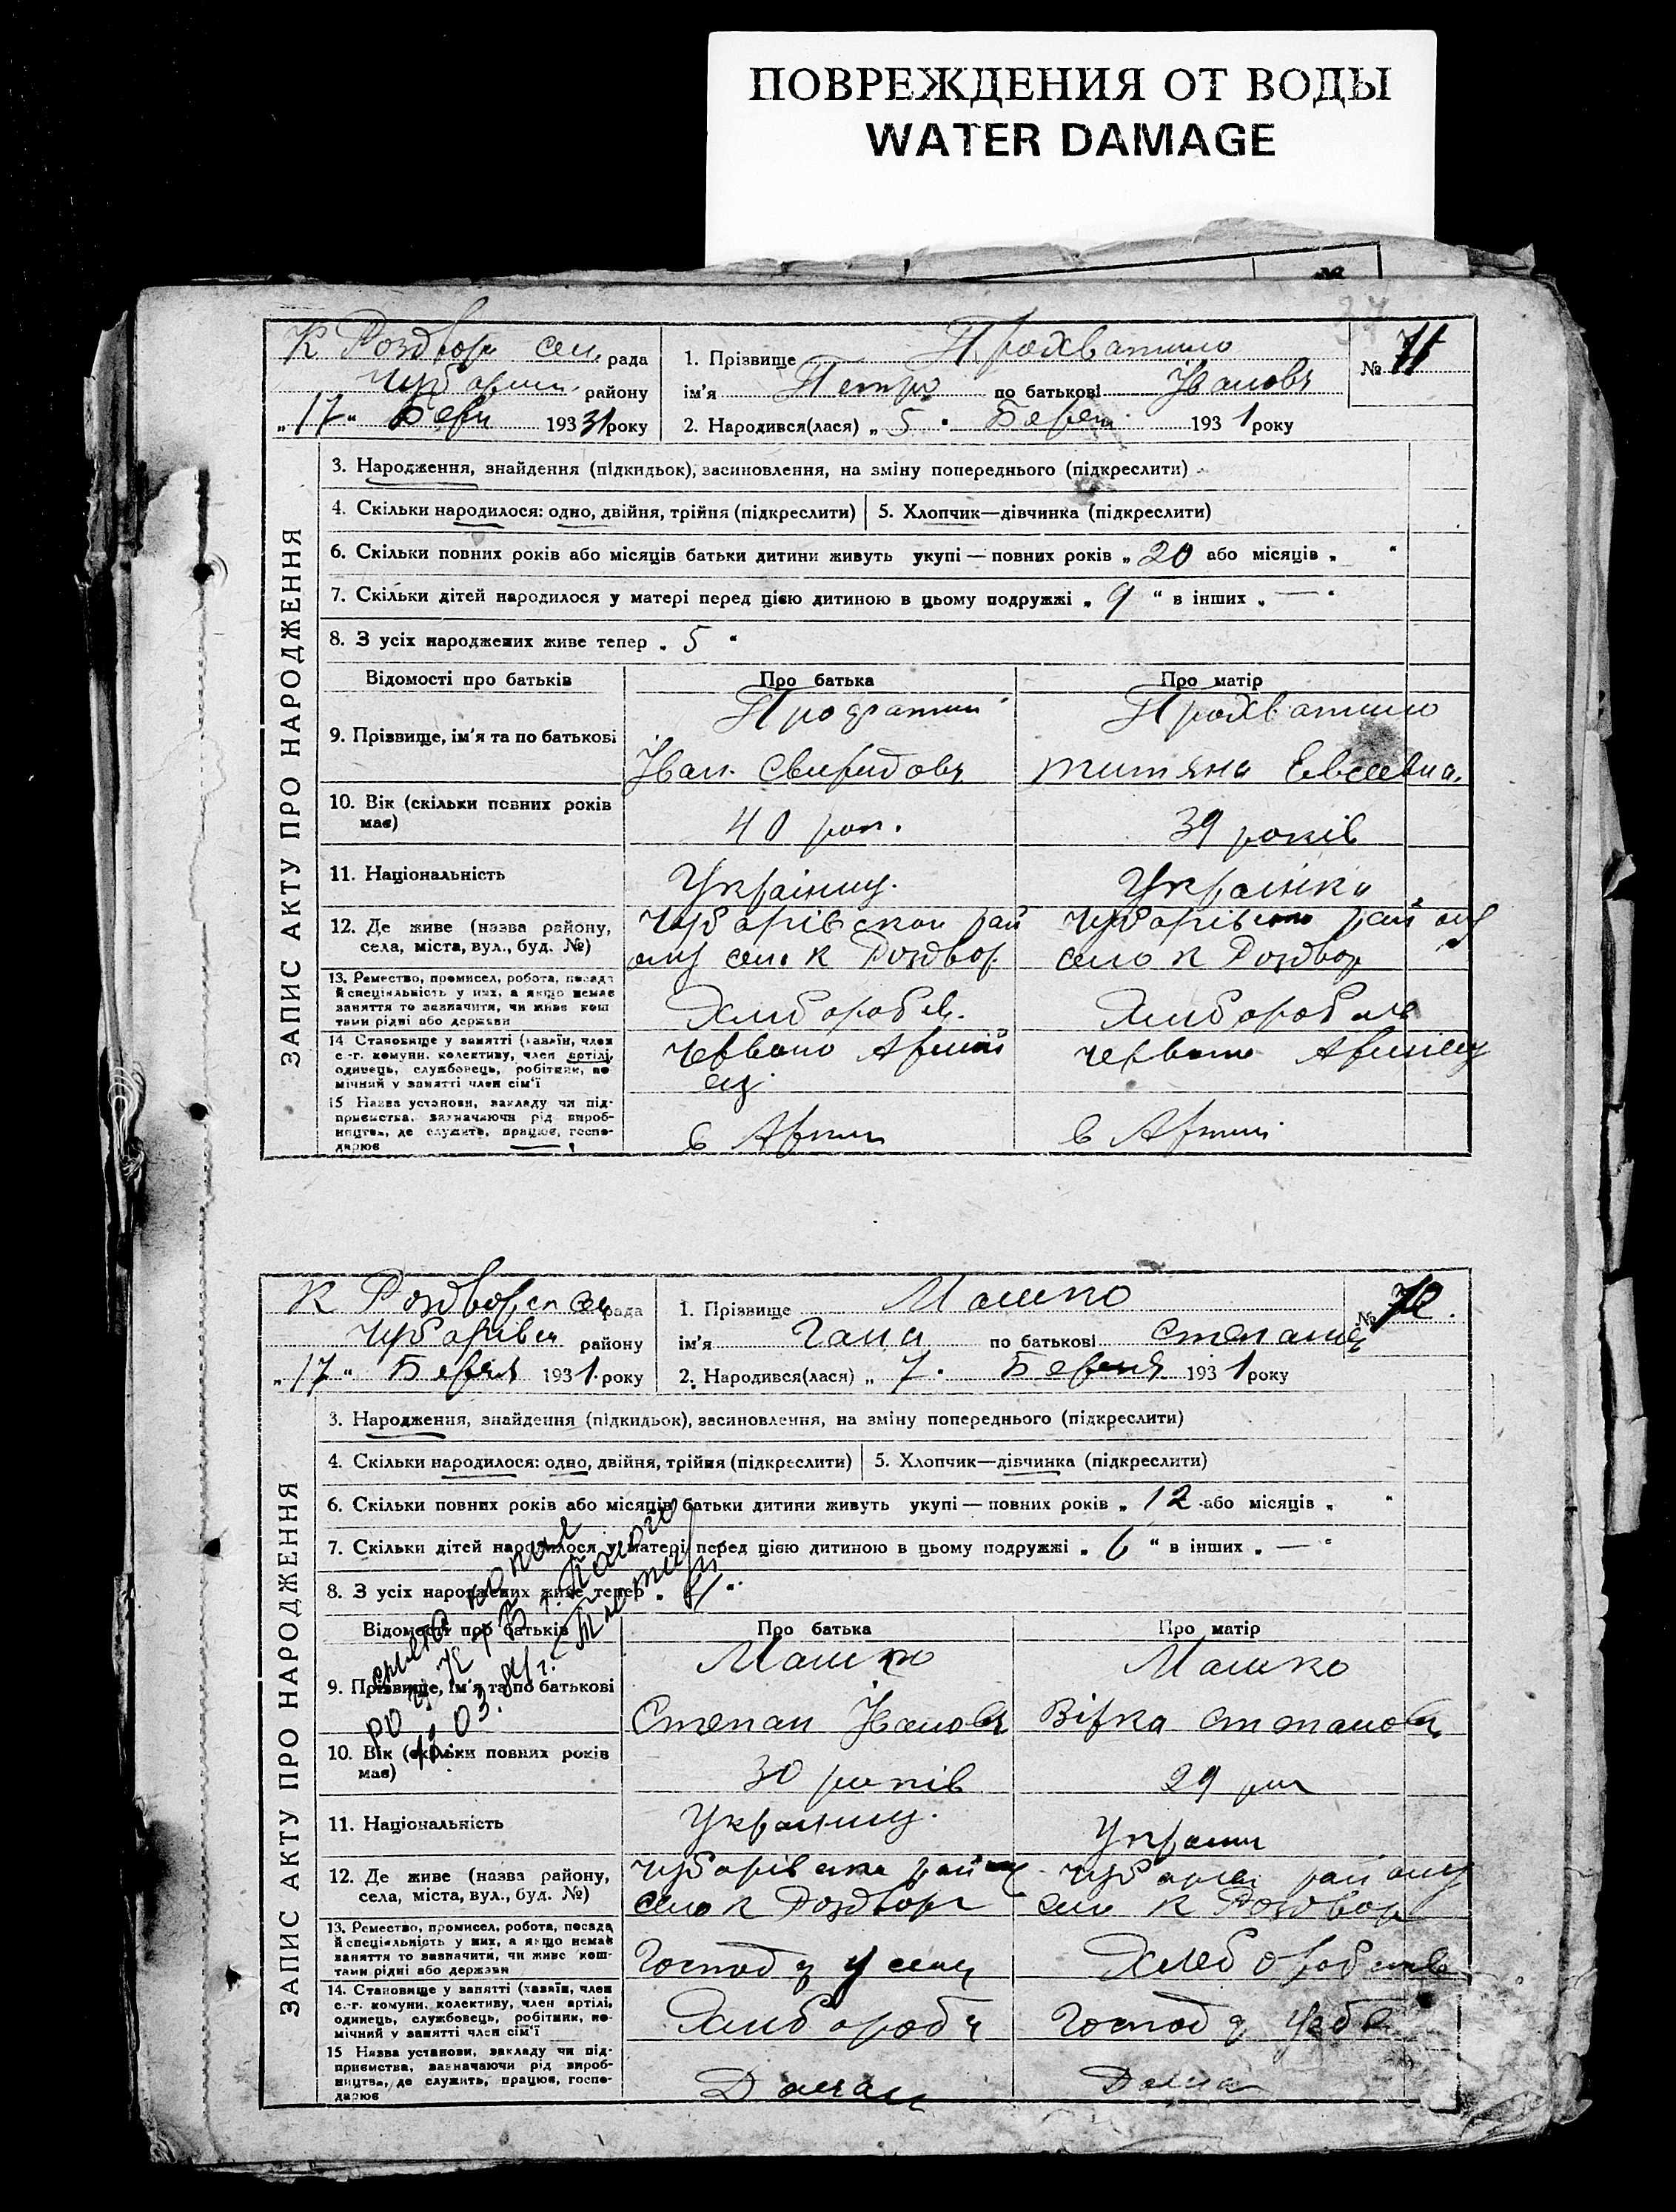 ПОВРЕЖДЕНИЯ ОТ ВОДЫ
WATER DAMAGE
37
К Роздвор сел. рада
Чубарів. району
„17“ Берн 19331 року
1. Прізвище Прохватило
№ 71
ім'я Петро по батькові Іванов
2. Народився(лася) „5“ Берез 1931 року
ЗАПИС АКТУ ПРО НАРОДЖЕННЯ
3. Народження, знайдення (підкидьок), засиновлення, на зміну попереднього (підкреслити)
4. Скільки народилося: одно, двійня, трійня (підкреслити)
5. Хлопчик—дівчинка (підкреслити)
6. Скільки повних років або місяців батьки дитини живуть укупі — повних років „20 або місяців „ “
7. Скільки дітей народилося у матері перед цією дитиною в цьому подружжі „9“ в інших „—“
8. З усіх народжених живе тепер „5“
Відомості про батьків Про батька Про матір
9. Прізвище, ім'я та по батькові
Прохватило
Іван Свиридов
Прохватило
Титяна Евсеевна
10. Вік (скільки повних років має)
40 рок.
39 років
11. Національність
Українец.
Українка
12. Де живе (назва району, села, міста, вул., буд. №)
Чубарівскои рай
ону село К Роздвор.
Чубарівско району
село К Роздвор
13. Ремество, промисел, робота, посада
й спеціяльність у них, а якщо немає
заняття то зазначити, чи живе кош
тами рідні або держави
Хлибороб
Хлибороб
14 Становище у занятті (хазяїн, член
с.-г. комуни, колективу, член артілі,
одинець, службовець, робітник, по
мічний у занятті член сім'ї
Червоно Армий
ец
Червоно Армиец
15 Назва установи, закладу чи під-
приємства, зазначаючи рід вироб-
ництва, де служить, працює, госпо-
дарює
в Армии
в Армии
К Роздворск сел рада
Чубарівск району
„17“ Березня 1931 року
1. Прізвище Машко
№ 72.
ім'я Гана по батькові Степан
2. Народився(лася) „7“ Березня 1931 року
ЗАПИС АКТУ ПРО НАРОДЖЕННЯ
3. Народження, знайдення (підкидьок), засиновлення, на зміну попереднього (підкреслити)
4. Скільки народилося: одно, двійня, трійня (підкреслити)
5. Хлопчик—дівчинка (підкреслити)
6. Скільки повних років або місяців батьки дитини живуть укупі — повних років „12 або місяців „ “
7. Скільки дітей народилося у матері перед цією дитиною в цьому подружжі „6“ в інших „—“
8. З усіх народжених живе тепер „
Відомості про батьків Про батька Про матір
9. Прізвище, ім'я та по батькові
Машко
Степан Іванов
Машко
Вірка Степанов
10. Вік (скільки повних років має)
30 років
29 рок
11. Національність
Украинец.
Украин
12. Де живе (назва району, села, міста, вул., буд. №)
Чубарівска району
село К Роздвор
Чубарів району
село К Роздвор
13. Ремество, промисел, робота, посада
й спеціяльність у них, а якщо немає
заняття то зазначити, чи живе кош-
тами рідні або держави
Господ у селу
Хлебороб
14. Становище у занятті (хазяїн, член
с.-г. комуни, колективу, член артілі,
одинець, службовець, робітник, по-
мічний у занятті член сім'ї
Хлибороб
Господ у себе
15 Назва установи, закладу чи під-
приємства, зазначаючи рід вироб-
ництва, де служить, працює, госпо-
дарює
Дома
Дома